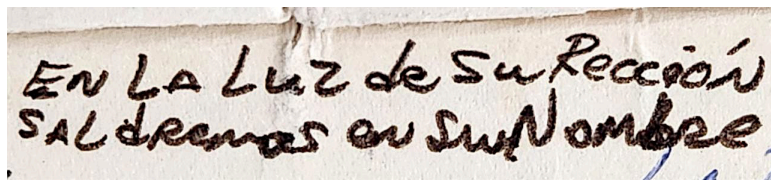 EN LA LUZ de Su Rección
SALdRemos en Su Nombre